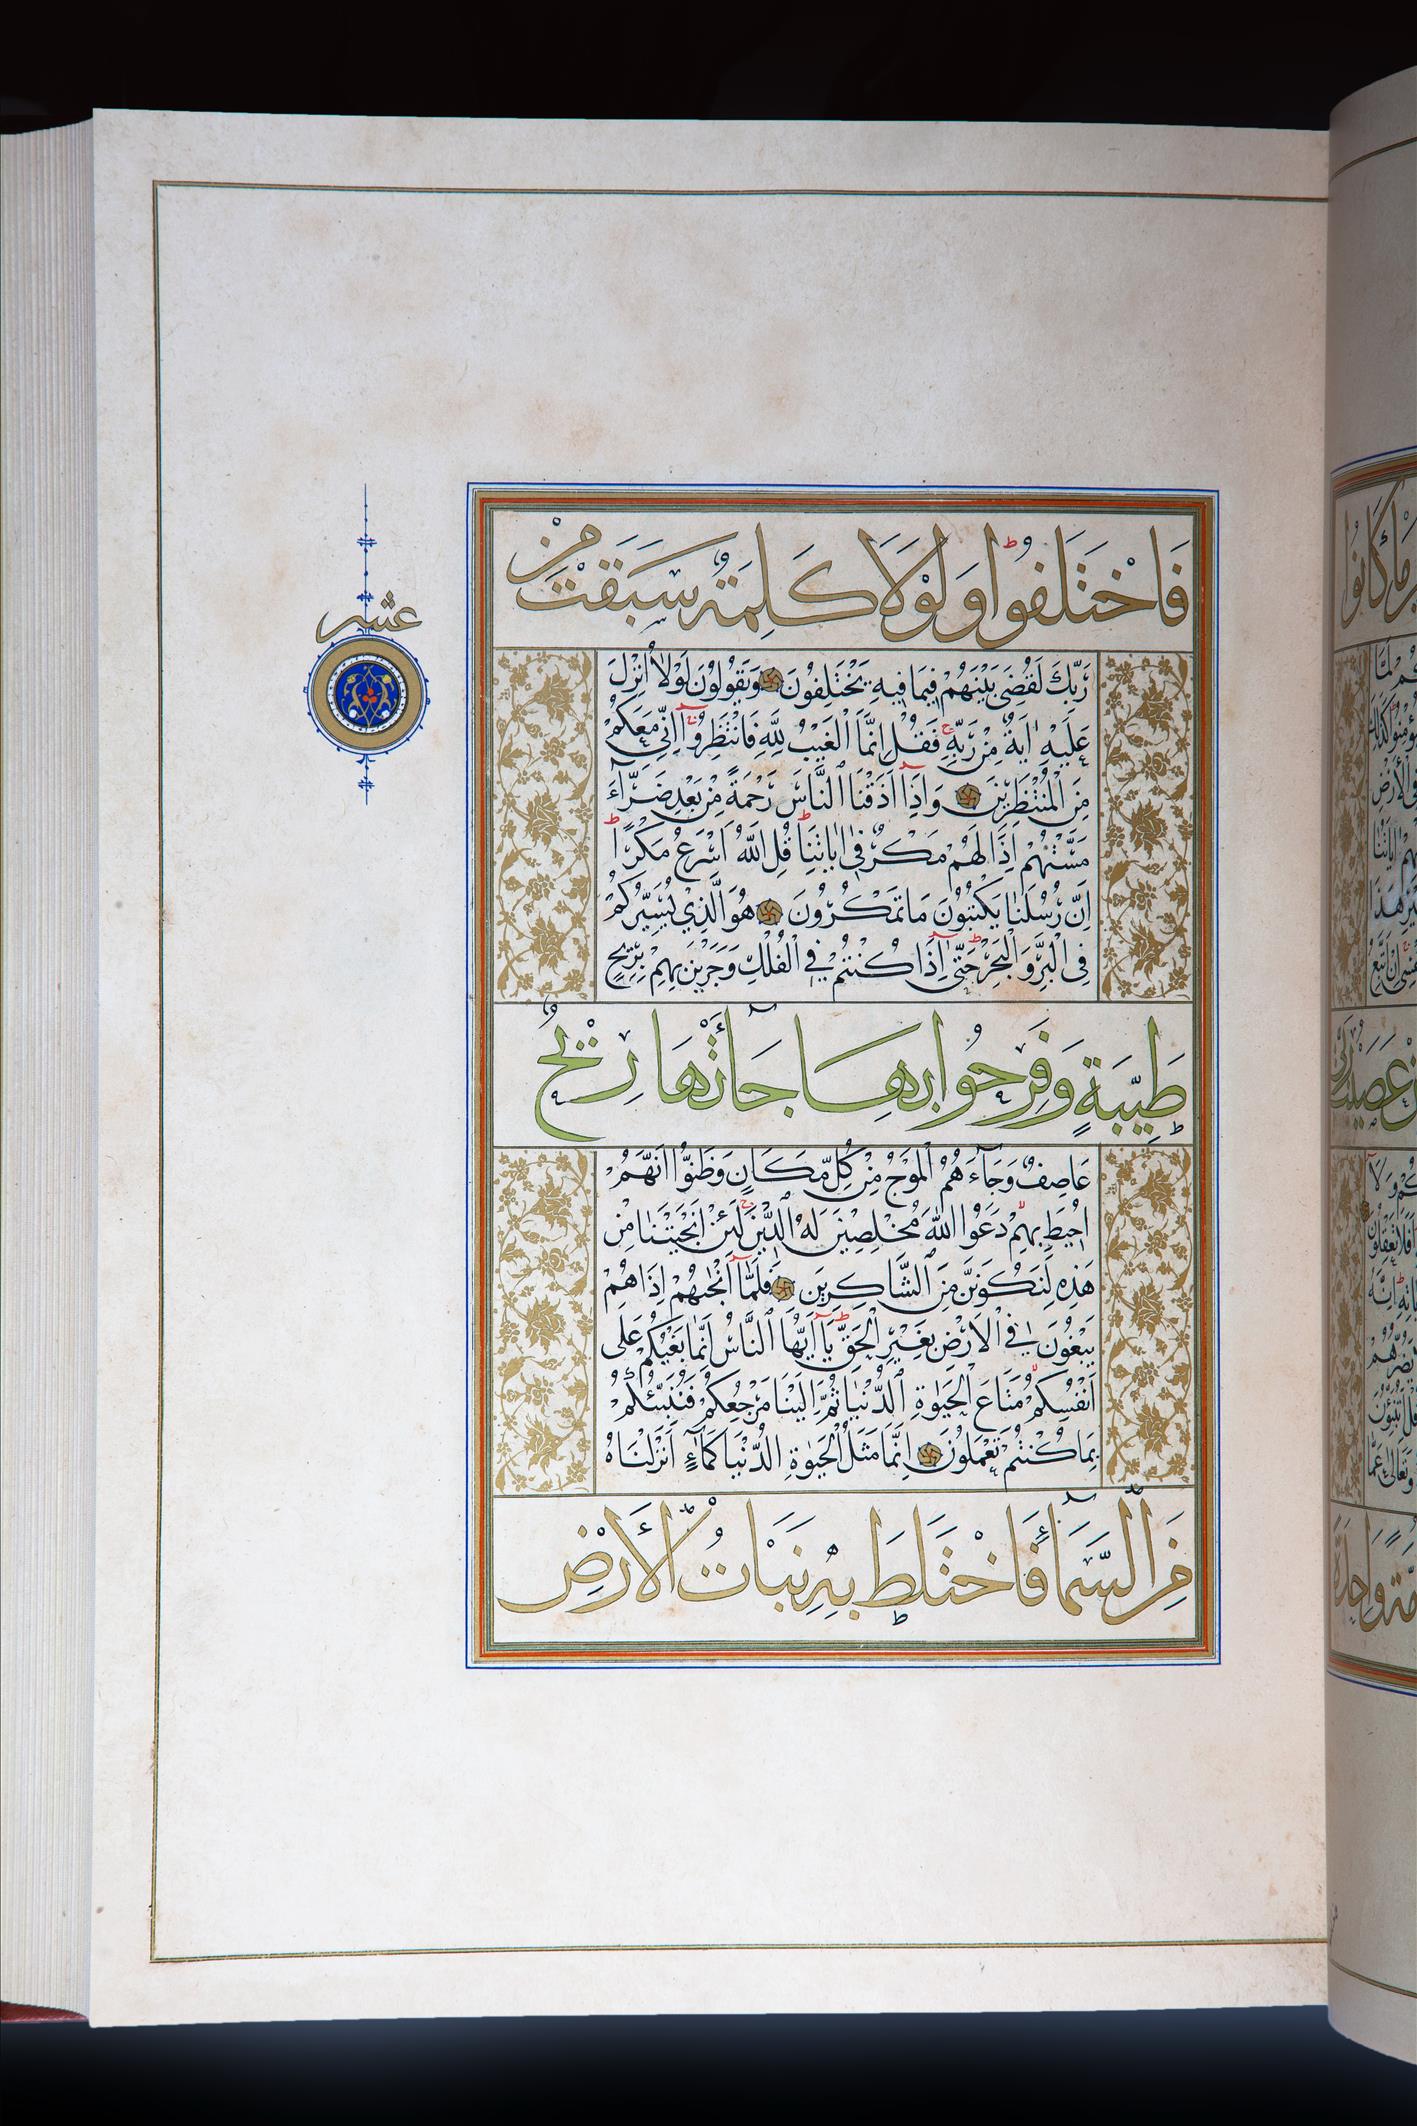 عشر
فَاخْتَلَفُوا وَلَوْلَا كَلِمَةٌ سَبَقَتْ مِنْ
رَبِّكَ لَقُضِىَ بَيْنَهُمْ فِيمَا فِيهِ يَخْتَلِفُونَ وَيَقُولُونَ لَوْلَا اُنْزِلَ
عَلَيْهِ اٰيَةٌ مِنْ رَبِّهِ فَقُلْ اِنَّمَا الْغَيْبُ لِلّٰهِ فَانْتَظِرُوا اِنِّي مَعَكُمْ
مِنَ الْمُنْتَظِرِينَ وَاِذَا اَذَقْنَا النَّاسَ رَحْمَةً مِنْ بَعْدِ ضَرَّاءَ
مَسَّتْهُمْ اِذَا لَهُمْ مَكْرٌ فِى اٰيَاتِنَا قُلِ اللّٰهُ اَسْرَعُ مَكْرًا
اِنَّ رُسُلَنَا يَكْتُبُونَ مَا تَمْكُرُونَ هُوَ الَّذِي يُسَيِّرُكُمْ
فِى الْبَرِّ وَالْبَحْرِ حَتّٰى اِذَا كُنْتُمْ فِي الْفُلْكِ وَجَرَيْنَ بِهِمْ بِرِيحٍ
طَيِّبَةٍ وَفَرِحُوا بِهَا جَاءَتْهَا رِيحٌ
عَاصِفٌ وَجَاءَهُمُ الْمَوْجُ مِنْ كُلِّ مَكَانٍ وَظَنُّوا اَنَّهُمْ
اُحِيطَ بِهِمْ دَعَوُا اللّٰهَ مُخْلِصِينَ لَهُ الدِّينَ لَئِنْ اَنْجَيْتَنَا مِنْ
هٰذِهِ لَنَكُونَنَّ مِنَ الشَّاكِرِينَ فَلَمَّا اَنْجٰيهُمْ اِذَا هُمْ
يَبْغُونَ فِي الْاَرْضِ بِغَيْرِ الْحَقِّ يَا اَيُّهَا النَّاسُ اِنَّمَا بَغْيُكُمْ عَلٰى
اَنْفُسِكُمْ مَتَاعَ الْحَيٰوةِ الدُّنْيَا ثُمَّ اِلَيْنَا مَرْجِعُكُمْ فَنُنَبِّئُكُمْ
بِمَا كُنْتُمْ تَعْمَلُونَ اِنَّمَا مَثَلُ الْحَيٰوةِ الدُّنْيَا كَمَاءٍ اَنْزَلْنَاهُ
مِنَ السَّمَاءِ فَاخْتَلَطَ بِهِ نَبَاتُ الْاَرْضِ